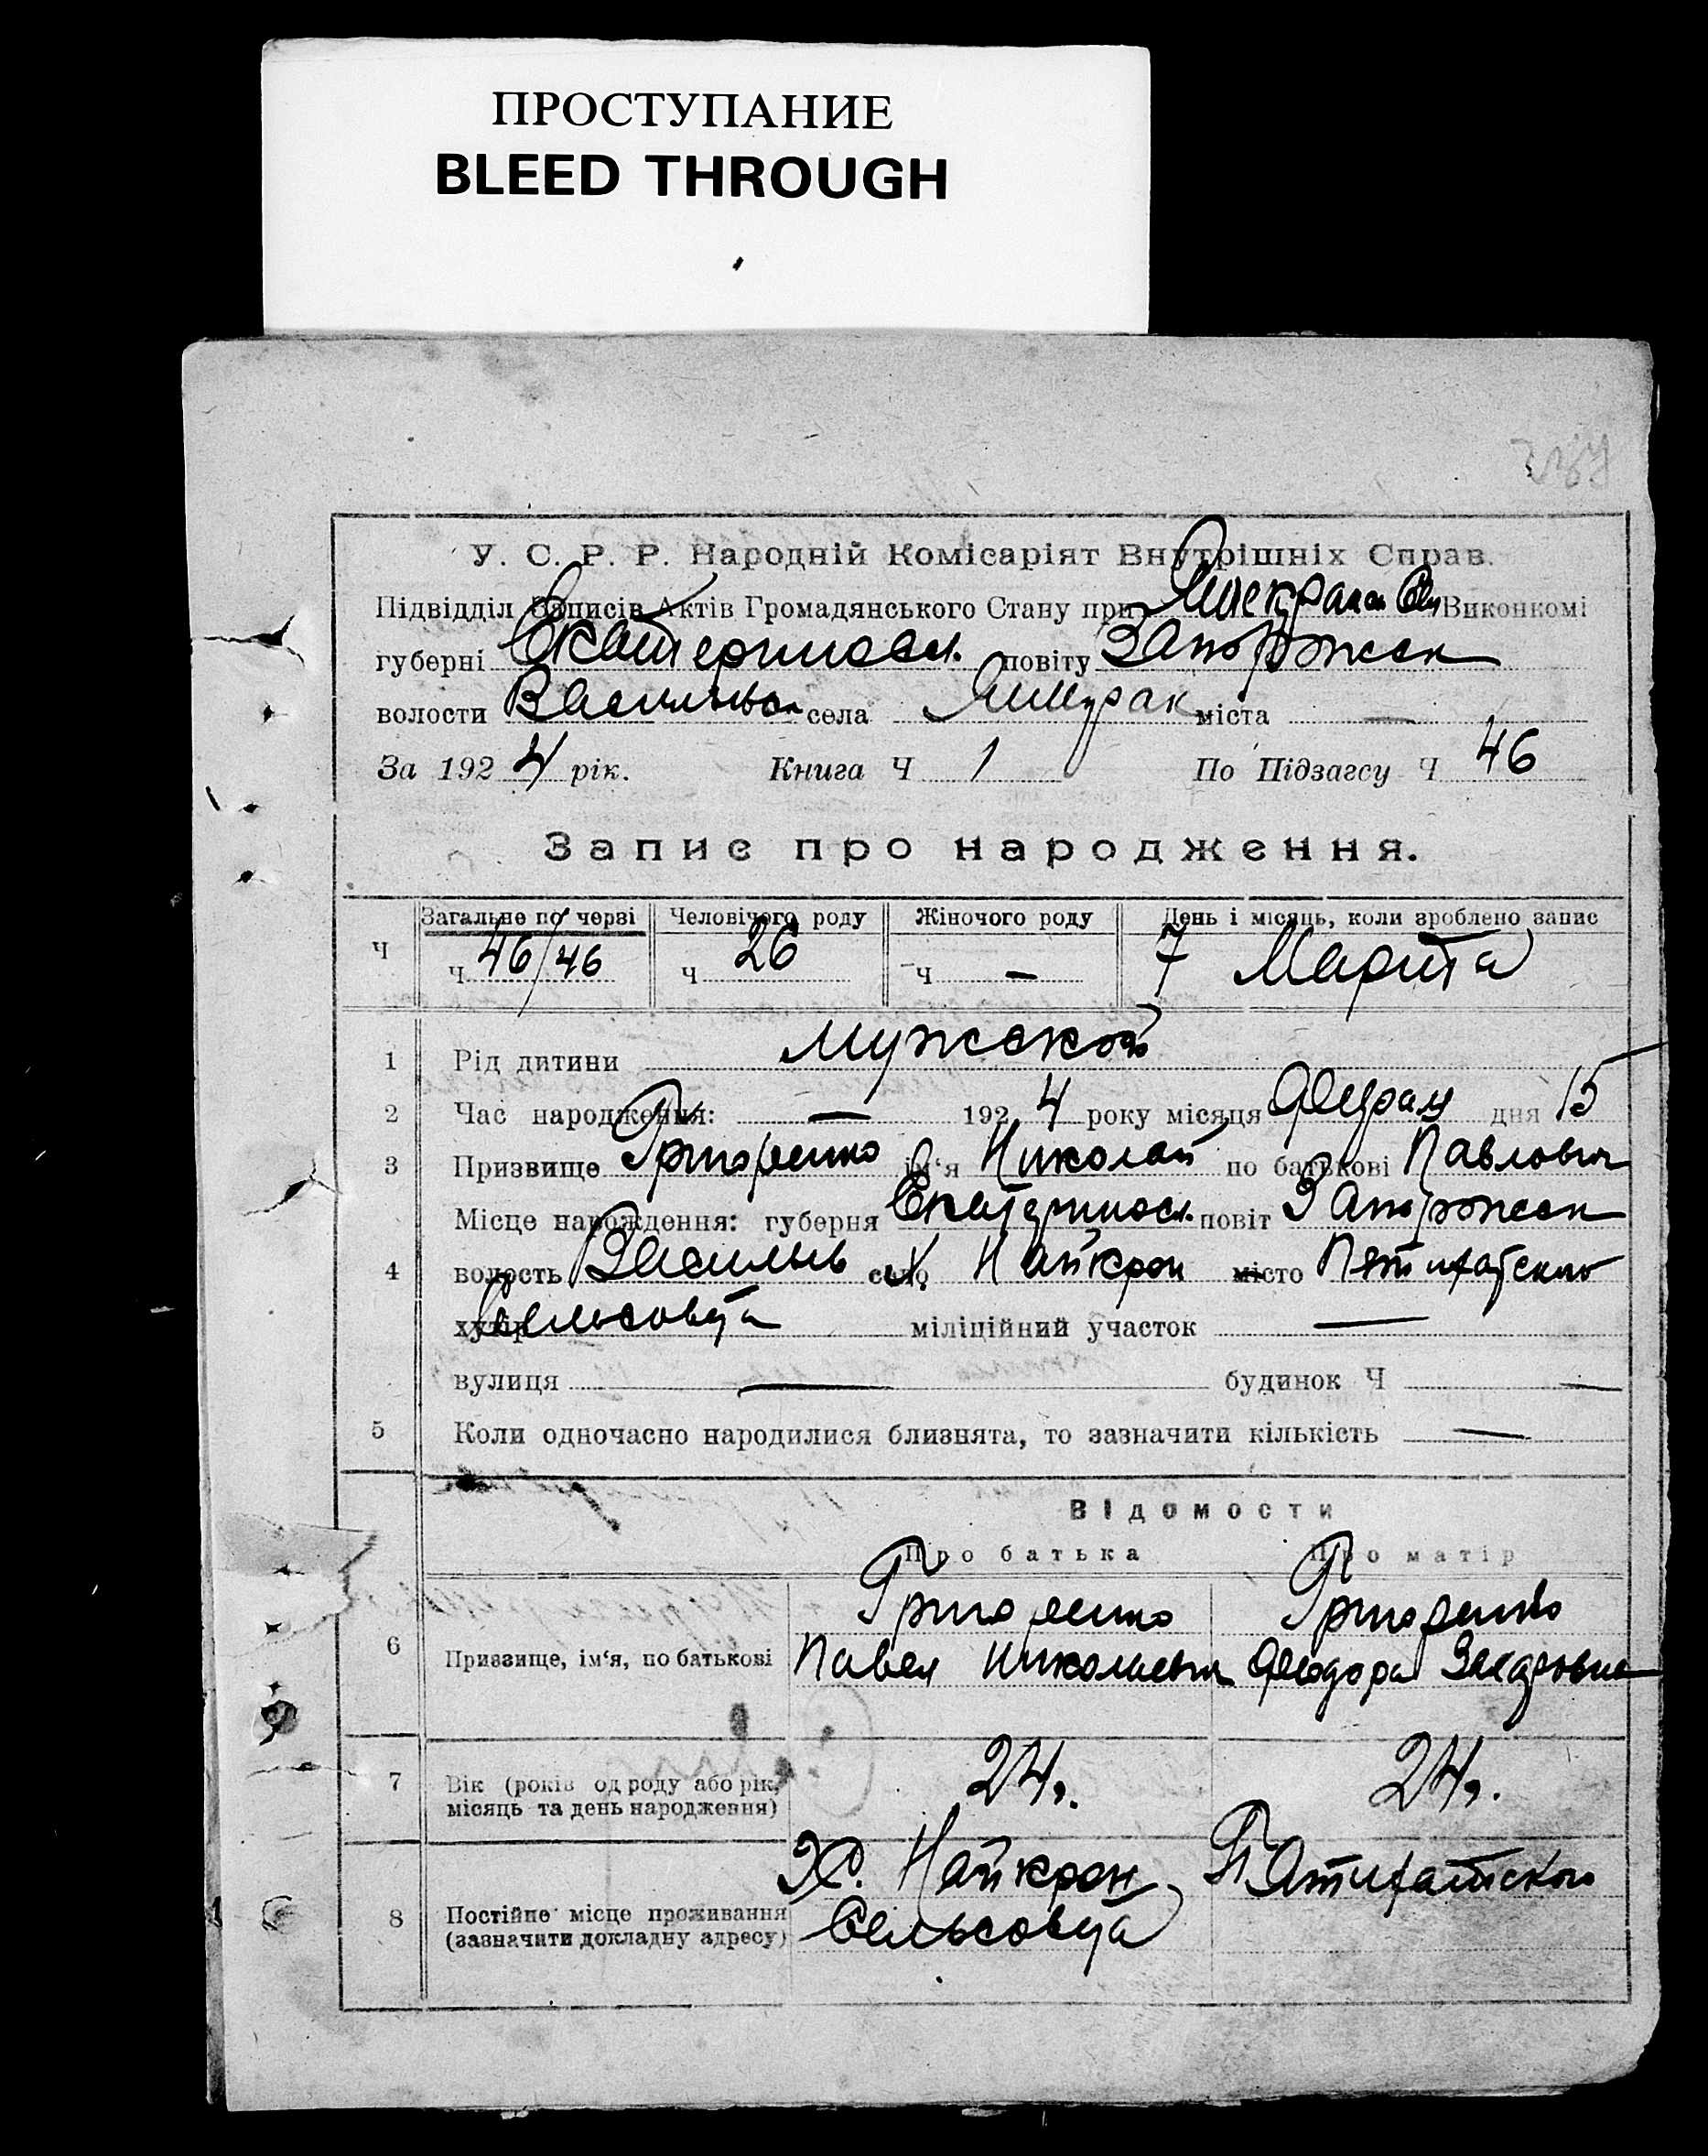 ПРОСТУПАНИЕ
BLEED THROUGH
У. С. Р. Р. Народній Комісаріят Внутрішніх Справ.
Підвідділ Записів Актів Громадянського Стану при Виконкомі
губерні Екатериносл. повіту Запорожск
волости Васильев села міста —
За 1924 рік. Книга Ч 1 По Підзагсу Ч 46
Запис про народження.
Загальне по черзі Человічого роду Жіночого роду День і місяць, коли зроблено запис
Ч Ч 46/46 Ч 26 Ч — 7 Марта
1 Рід дитини мужской
2 Час народження: — 1924 року місяця Феврал дня 15
3 Призвище Григоренко ім‘я Николай по батькові Павлович
Місце нарождення: губерня Екатериносл. повіт Запорожск
4 волость Василье село Х. Найкрон місто Пятихатского
хутір Сельсовета міліційний участок —
вулиця — будинок Ч —
5 Коли одночасно народилися близнята, то зазначити кількість —
Відомости
Про батька Про матір
Григоренко Григоренко
6 Призвище, ім‘я, по батькові Павел Николаевич Феодора Захаровна
7 Вік (років од роду або рік, 24 г. 24 г.
місяць та день народження)
Х. Найкрон Пятихатского
8 Постійне місце проживання Сельсовета
(зазначити докладну адресу)